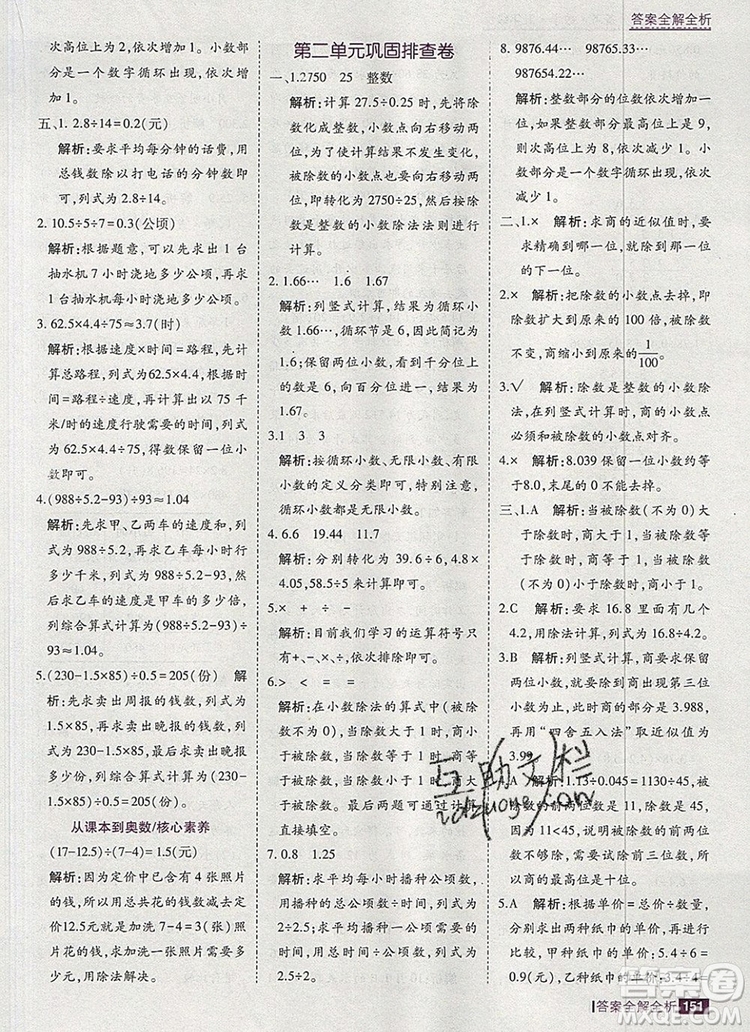 答案全解全析
次高位上为2,依次增加1。小数部
分是一个数字循环出现,依次增
加1。
五、1. 2.8÷14=0.2(元)
解析:要求平均每分钟的话费,用
总钱数除以打电话的分钟数即
可,列式为2.8÷14。
2. 10.5÷5÷7=0.3(公顷)
解析:根据题意,可以先求出1台
抽水机7小时浇地多少公顷,再求
1台抽水机每小时浇地多少公顷。
3. 62.5×4.4÷75≈3.7(时)
解析:根据速度×时间=路程,先计
算总路程,再根据时间=路程÷速
度,用路程除以返回时以75千
米/时的速度行驶需要的时间,列
式计算即可,得数保留一位小
数即可。
4.(988÷5.2-93)÷93≈1.04
解析:先求甲、乙两车的速度和,列
式为988÷5.2,再求乙车每小时行
多少千米,列式为988÷5.2-93,然
后求乙车的速度是甲车的多少倍,
列综合算式为(988÷5.2-93)÷93≈
1.04。
5.(230-1.5×85)÷0.5=205(份) 解
析:先求卖出周报的钱数,列式为
1.5×85,再求卖出晚报的钱数,列
式为230-1.5×85,最后求卖出晚报
多少份,列综合算式为(230-1.5×
85)÷0.5=205(份)。
从课本到奥数/核心素养
(17-12.5)÷(7-4)=1.5(元)
解析:因为定价中含有4张照片
的花费,所以用总共花的钱数减去
定价12.5元就是加洗7-4=3(张)照
片花的钱,用除法解决。
第二单元巩固排查卷
一、1.2750 25 整数
解析:计算27.5÷0.25时,先将除
数化成整数,小数点向右移动两
位,为了使计算结果不发生变化,
被除数的小数点也要向右移动两
位,即转化为2750÷25,然后按照除
数是整数的小数除法法则进行计
算。
2. 1.66… 1.6 1.67
解析:列竖式计算,结果为循环小
数1.66…,循环节是6,因此简记为
1.6。保留两位小数,看千分位上
的数,再用“四舍五入法”取值为
1.67。
3.1 3 3
解析:按循环小数、无限小数、有限
小数的定义分类即可,特别注意,
循环小数都是无限小数。
4. 6.6 19.44 11.7
解析:分别转化为39.6÷6,4.86×
4,58.5÷5来计算即可。
5. × ÷ ÷ =
解析:目前我们学习的运算符号只
有+、-、×、÷,依次排除即可。
6. > < = =
解析:在小数除法的算式中(被除
数不为0),当除数大于1时,商小
于被除数,当除数等于1时,商等
于被除数,当除数小于1时,商大于
被除数。最后两题可以通过计算
直接填空。
7. 0.8 1.25
解析:求平均每小时播种公顷数,
用公顷数除以时间,列式为2÷2.5;
求平均播种1公顷要多少小时,用
播种时间除以播种公顷数,列式为
2.5÷2。
8. 9876.44… 98765.33…
987654.22…
解析:整数部分的位数依次增加一
位,如果整数部分最高位上是9,
则次高位上为8,依次减少1。小
数部分是一个数字循环,依次
减少1。
二、1.× 解析:求商的近似值时,要
求精确到哪一位,就除到哪一位
的下一位。
2.× 解析:把除数的小数点去掉,即
除数扩大到原来的100倍,被除数
不变,商缩小到原来的1/100。
3.√ 解析:除数是整数的小数除
法,在列竖式计算时,商的小数点
必须和被除数的小数点对齐。
4.× 解析:8.039保留一位小数约等
于8.0,末尾的0不能去掉。
三、1.A 解析:当被除数(不为0)大
于除数时,商大于1,当被除数等于
除数时,商等于1,当被除数(不为
0)小于除数时,商小于1。
2.C 解析:要求16.8里面有几个
4.2,用除法计算,列式为16.8÷4.2。
3.B 解析:列竖式计算,要求保留
两位小数,因此要除到商出现第三位
小数为止,即商的小数位为3.988,
再用“四舍五入法”取近似值为
3.99。
4.A 解析:1.13÷0.045=1130÷45,被
除数的前两位数是11,除数是45,
因为11<45,所以被除数前两位不
够除,需要试除前三位数,即前三
位数。
5.A 解析:根据单价=总价÷数量,
分别求出两种纸巾的单价,再进行
比较,甲种纸巾的单价:5.4÷6=
0.9(元),乙种纸巾的单价:3.4÷4=
互助文栏
答案全解全析 151